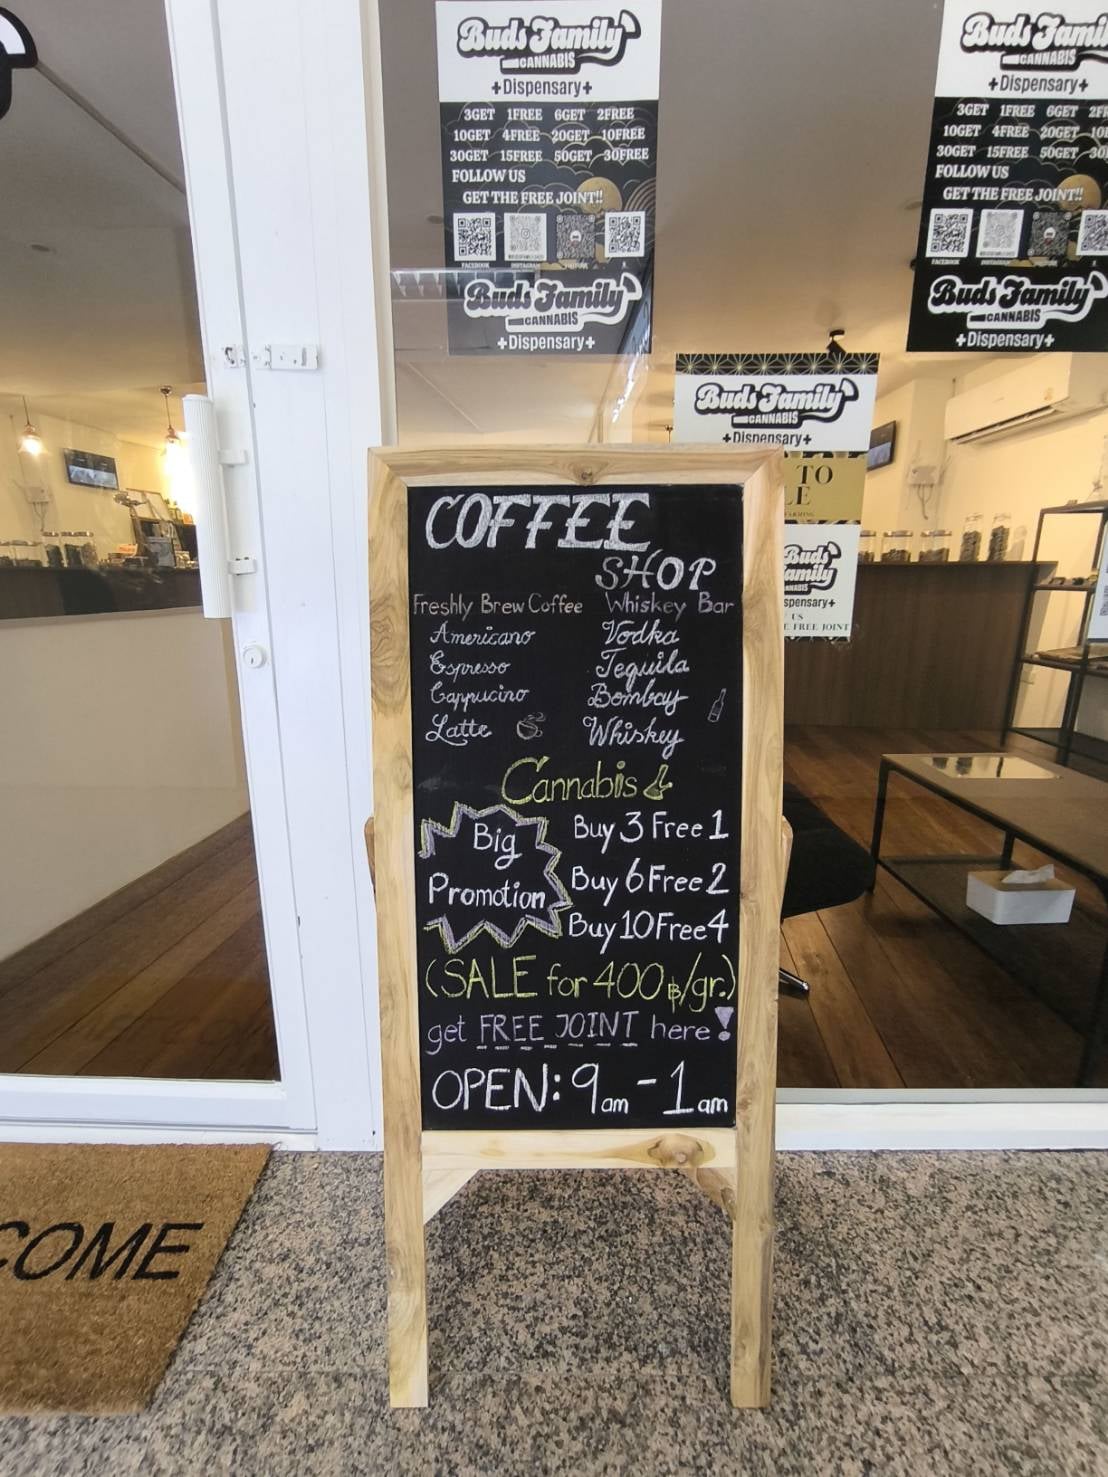 Buds Family
CANNABIS
+Dispensary+
3GET 1FREE 6GET 2FREE
10GET 4FREE 20GET 10FREE
30GET 15FREE 50GET 30FREE
FOLLOW US
GET THE FREE JOINT!!
FACEBOOK INSTAGRAM YOUTUBE X
Buds Family
CANNABIS
+Dispensary+
Buds Fami
CANNABIS
+Dispensary+
3GET 1FREE 6GET 2FR
10GET 4FREE 20GET 10
30GET 15FREE 50GET 30
FOLLOW US
GET THE FREE JOINT!!
FACEBOOK INSTAGRAM
Buds Family
CANNABIS
+Dispensary+
Buds Family
CANNABIS
+Dispensary+
TO
LE
FARMING
Buds
Family
CANNABIS
spensary+
US
E FREE JOINT
COFFEE
SHOP
Freshly Brew Coffee Whiskey Bar
Americano Vodka
Espresso Tequila
Cappucino Bombay
Latte Whiskey
Cannabis
Big Promotion
Buy 3 Free 1
Buy 6 Free 2
Buy 10 Free 4
(SALE for 400฿/gr.)
get FREE JOINT here!
OPEN: 9am - 1am
COME